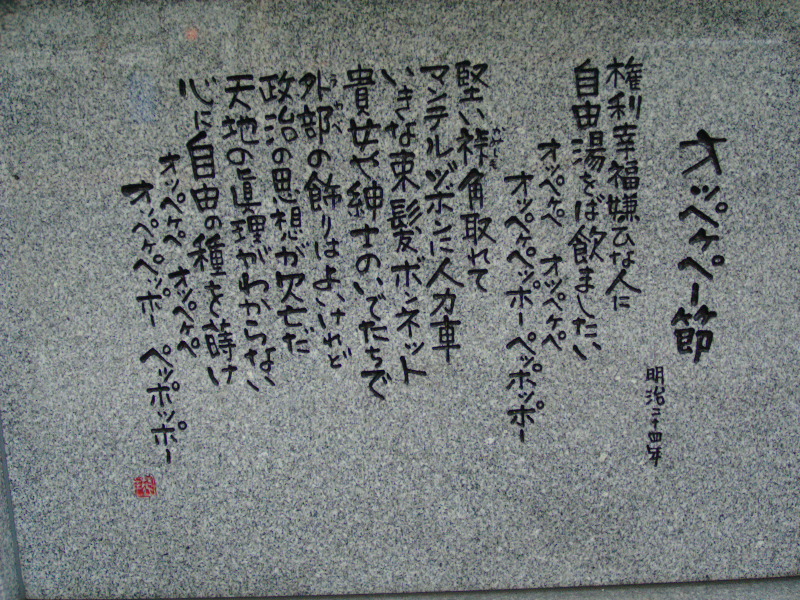 オッペケペー節
明治二十四年
権利幸福嫌ひな人に
自由湯をば飲ましたい
オッペケペ オッペケペ
オッペケペッポーペッポッポー
堅い裃角取れて
マンテルヅボンに人力車
いきな束髪ボンネット
貴女や紳士のいでたちで
外部の飾りはよいけれど
政治の思想が欠乏だ
天地の眞理がわからない
心に自由の種を蒔け
オッペケペ オッペケペ
オッペケペッポー ペッポッポー